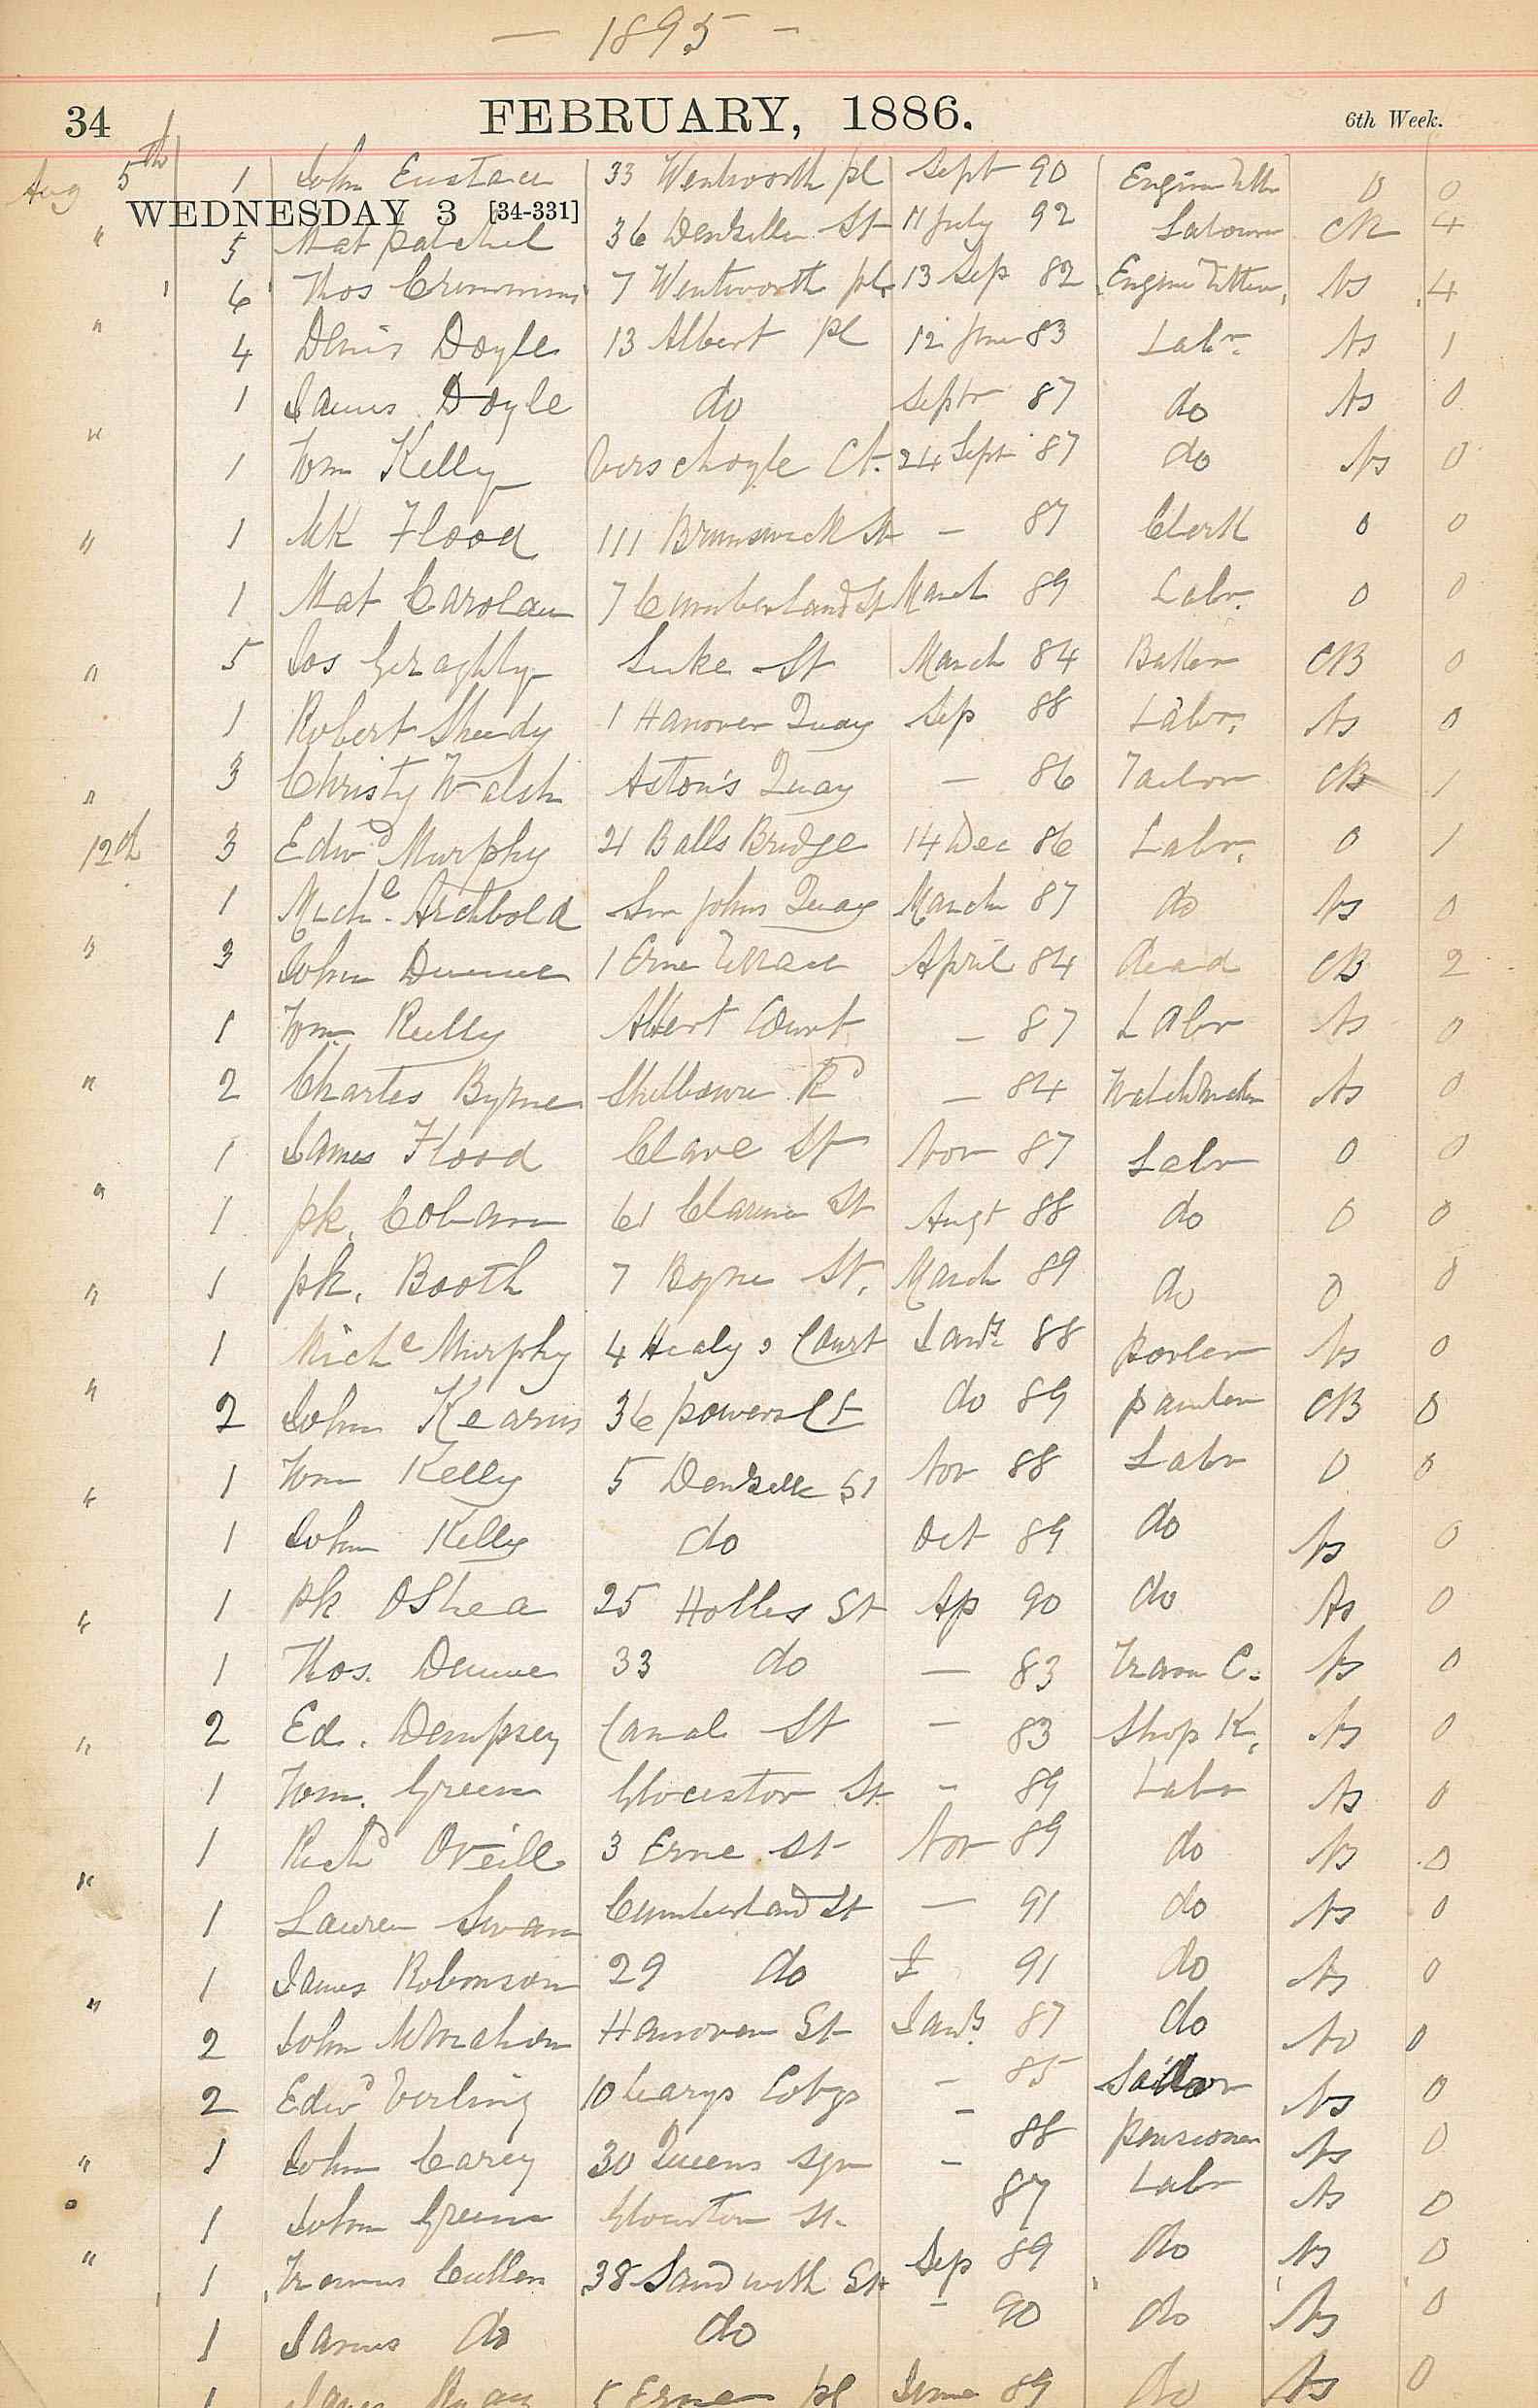 — 1895 —
34 FEBRUARY, 1886. 6th Week.
Aug 5th 1 John Eustace 33 Wentworth pl Sept 90 Engine Fitter 0 0
WEDNESDAY 3 [34-331]
" 5 Mat 36 Denzille St 11 July 92 Labourer CB 4
6 Thos Crimmins 7 Wentworth pl. 13 Sep 82 Engine Fitter Ns 4
" 4 Denis Doyle 13 Albert pl 12 June 83 Labr. Ns 1
1 James Doyle do Septr 87 do Ns 0
" 1 Wm Kelly Verschoyle Ct. 24 Sept 87 do Ns 0
" 1 Mk Flood 111 Brunswick St — 87 Clerk 0 0
1 Mat Carolan 7 Cumberland St March 89 Labr. 0 0
" 5 Jos Geraghty Luke St March 84 Baker CB 0
1 Robert Sheedy 1 Hanover Quay Sep 88 Labr. Ns 0
" 3 Christy Walsh Aston's Quay — 86 Tailor CB 1
12th 3 Edwd Murphy 21 Balls Bridge 14 Dec 86 Labr. 0 1
1 Miche. Archbold Sir Johns Quay March 87 do Ns 0
" 3 John Dunne 1 Erne Terrace April 84 dead CB 2
1 Wm Reilly Albert Court — 87 Labr Ns 0
" 2 Charles Byrne Shelbourne Rd — 84 Watchmaker Ns 0
1 James Flood Clare St Nov 87 Labr 0 0
" 1 pk. 61 St Augt 88 do 0 0
" 1 pk. Booth 7 Boyne St. March 89 do 0 0
1 Miche Murphy 4 Healys Court Jany. 88 porter Ns 0
" 2 John Kearns 36 powers Ct do 89 painter CB 0
" 1 Wm Kelly 5 Denzille St Nov 88 Labr 0 0
1 John Kelly do Oct 89 do Ns 0
" 1 pk OShea 25 Holles St Ap 90 do Ns 0
1 Thos. Dunne 33 do — 83 Tram C. Ns 0
" 2 Ed. Dempsey Canal St — 83 Shop K. Ns 0
1 Wm. Green Glocestor St. - 89 Labr Ns 0
1 Richd ONeill 3 Erne St Nov 89 do Ns 0
" 1 Lauren Swan Cumberland St — 91 do Ns 0
1 James Robinson 29 do J 91 do Ns 0
" 2 John McMahon Hanover St Jany. 87 do No 0
2 Edwd Verling 10 Careys Cotgs - 85 Sailor Ns 0
" 1 John Carey 30 Queens Sqr - 88 pensioner Ns 0
1 John Green Glouster St. - 87 Labr Ns 0
" 1 Francis Cullen 38 Sandwith St Sep 89 do Ns 0
1 James do do - 90 do Ns 0
1 James 5 Erne pl June 89 do Ns 0